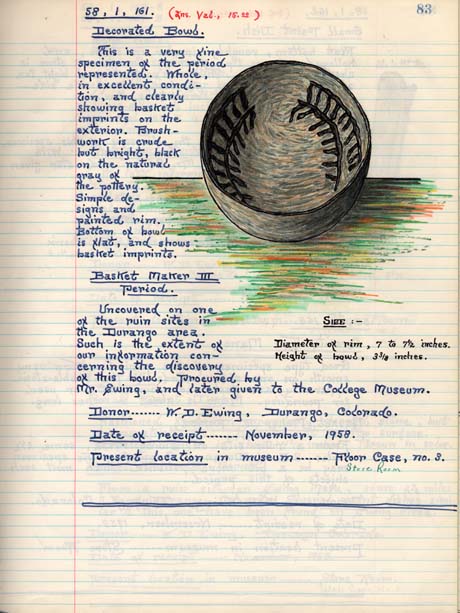 58, 1, 161. (Ins. Val., 15.00) 83
Decorated Bowl.
This is a very fine
specimen of the period
represented. Whole,
in excellent condi-
tion, and clearly
showing basket
imprints on the
exterior. Brush-
work is crude
but bright, black
on the natural
gray of
the pottery.
Simple de-
signs and
painted rim.
Bottom of bowl
is flat, and shows
basket imprints.
Basket Maker III
Period.
Uncovered on one
of the ruin sites in
the Durango area.
Such is the extent of
our information con-
cerning the discovery
of this bowl. Procured by
Mr. Ewing, and later given to the College Museum.
Size :-
Diameter of rim, 7 to 7½ inches.
Height of bowl, 3⅜ inches.
Donor------- W. D. Ewing, Durango, Colorado.
Date of receipt------ November, 1958.
Present location in museum------- Floor Case, no. 3.
Store Room